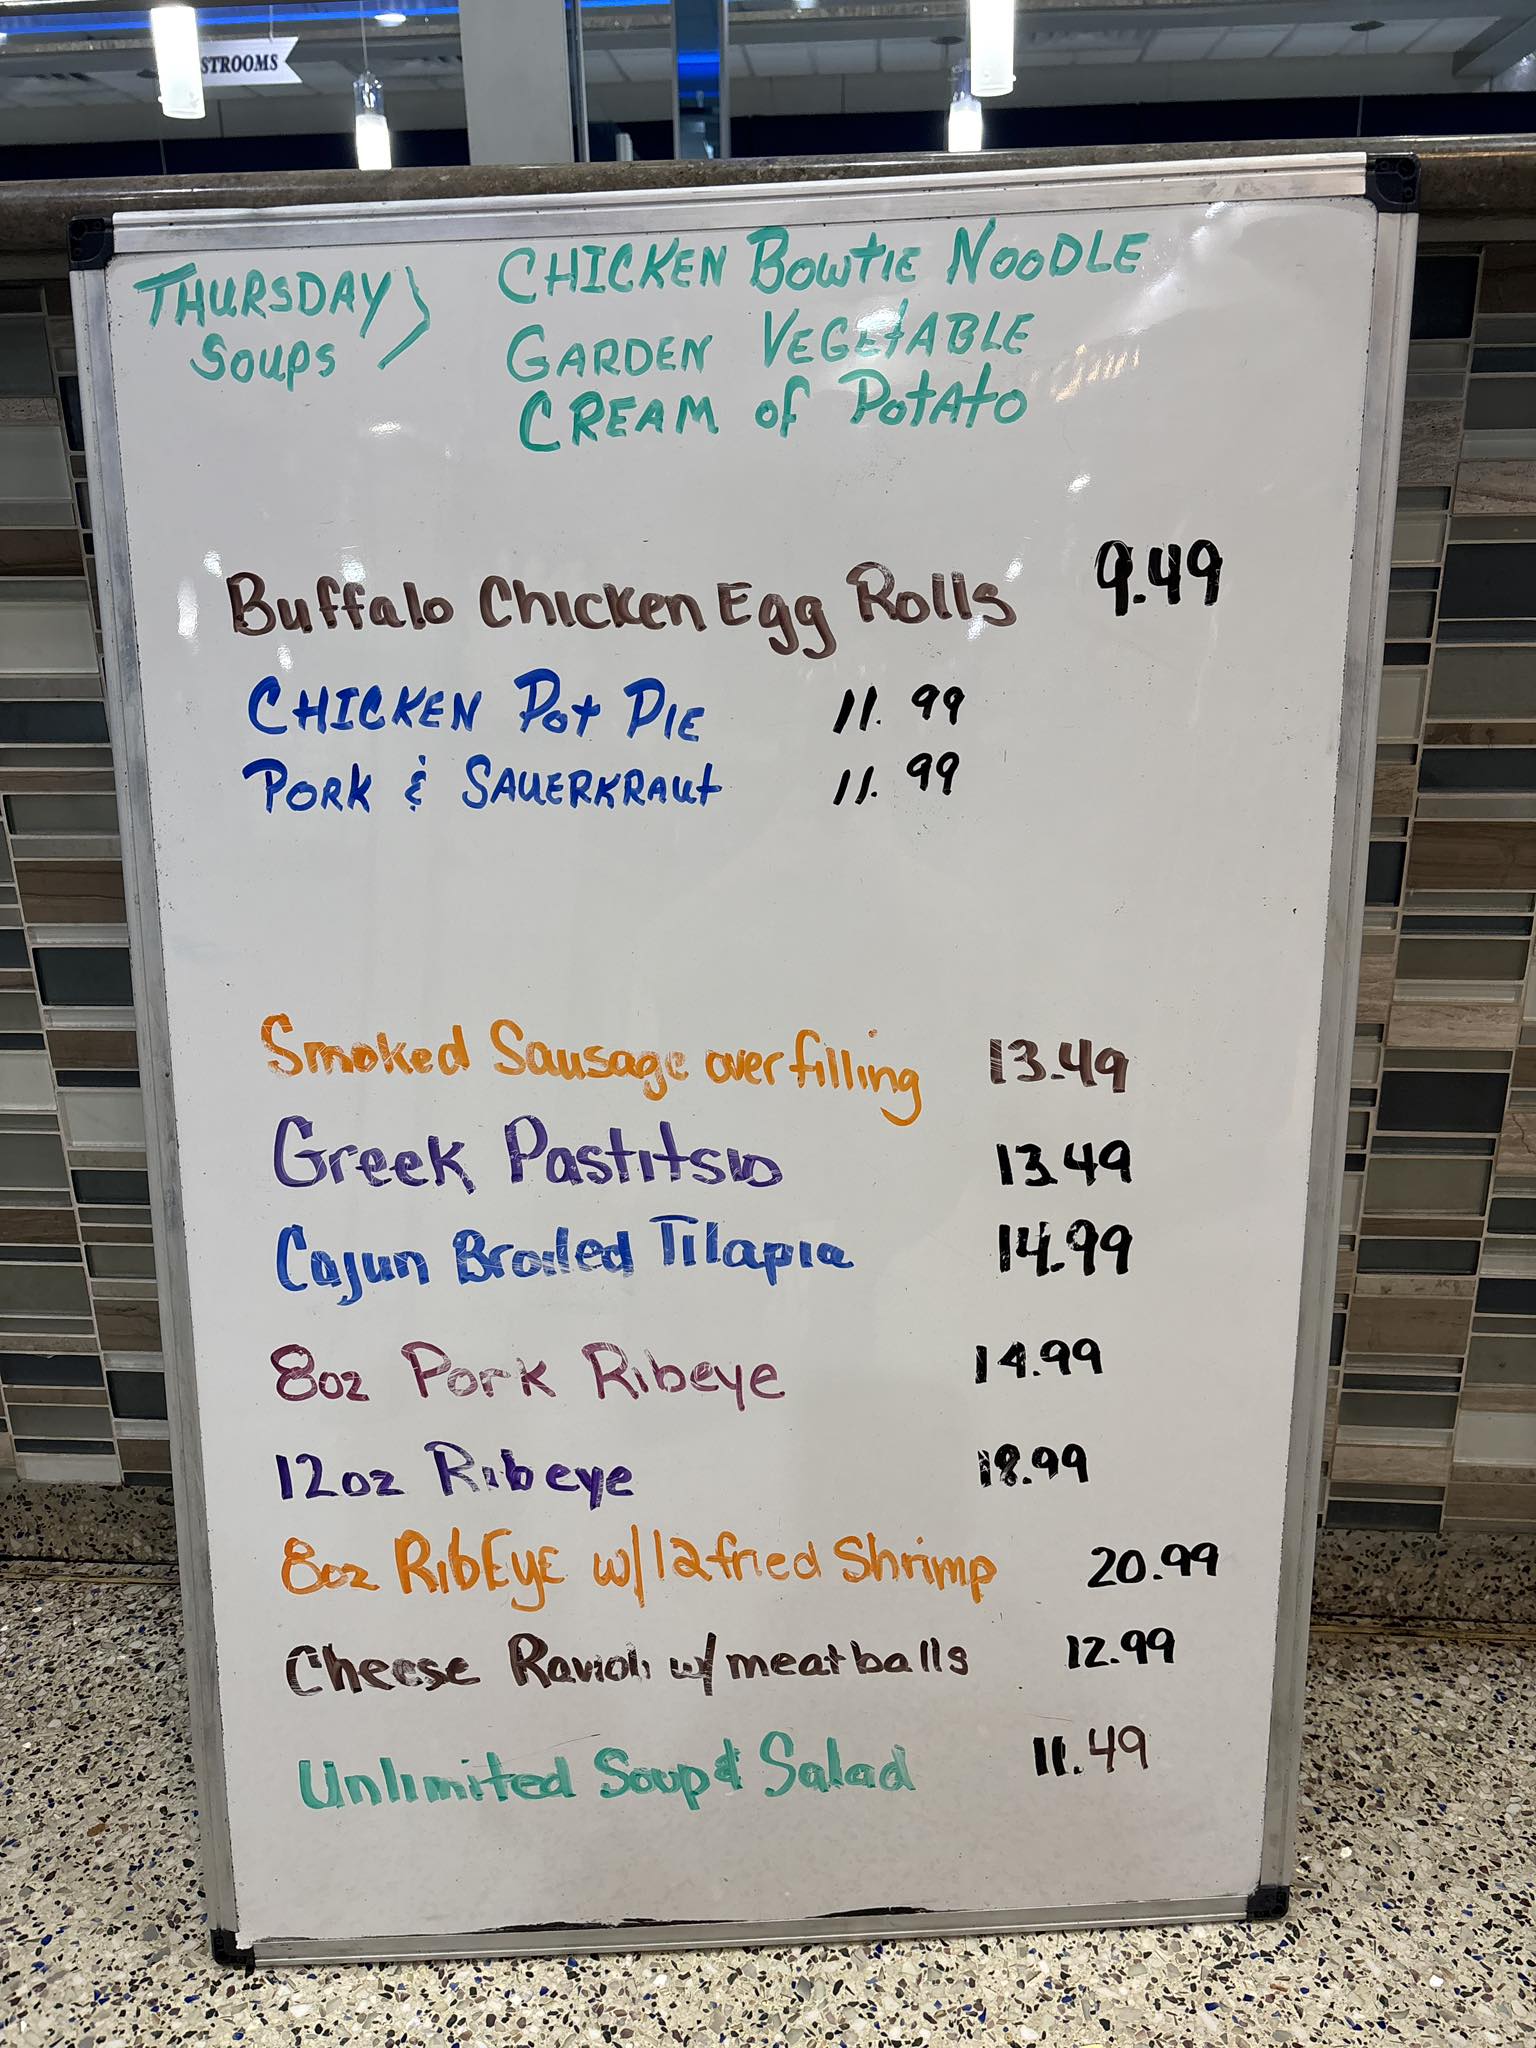 STROOMS
THURSDAY SOUPS
CHICKEN BOWTIE NOODLE
GARDEN VEGETABLE
CREAM of POTATO
Buffalo Chicken Egg Rolls 9.49
CHICKEN POT PIE 11.99
PORK & SAUERKRAUT 11.99
Smoked Sausage over filling 13.49
Greek Pastitsio 13.49
Cajun Broiled Tilapia 14.99
8oz Pork Ribeye 14.99
12oz Ribeye 18.99
8oz RibEye w/12 fried Shrimp 20.99
Cheese Ravioli w/meatballs 12.99
Unlimited Soup & Salad 11.49